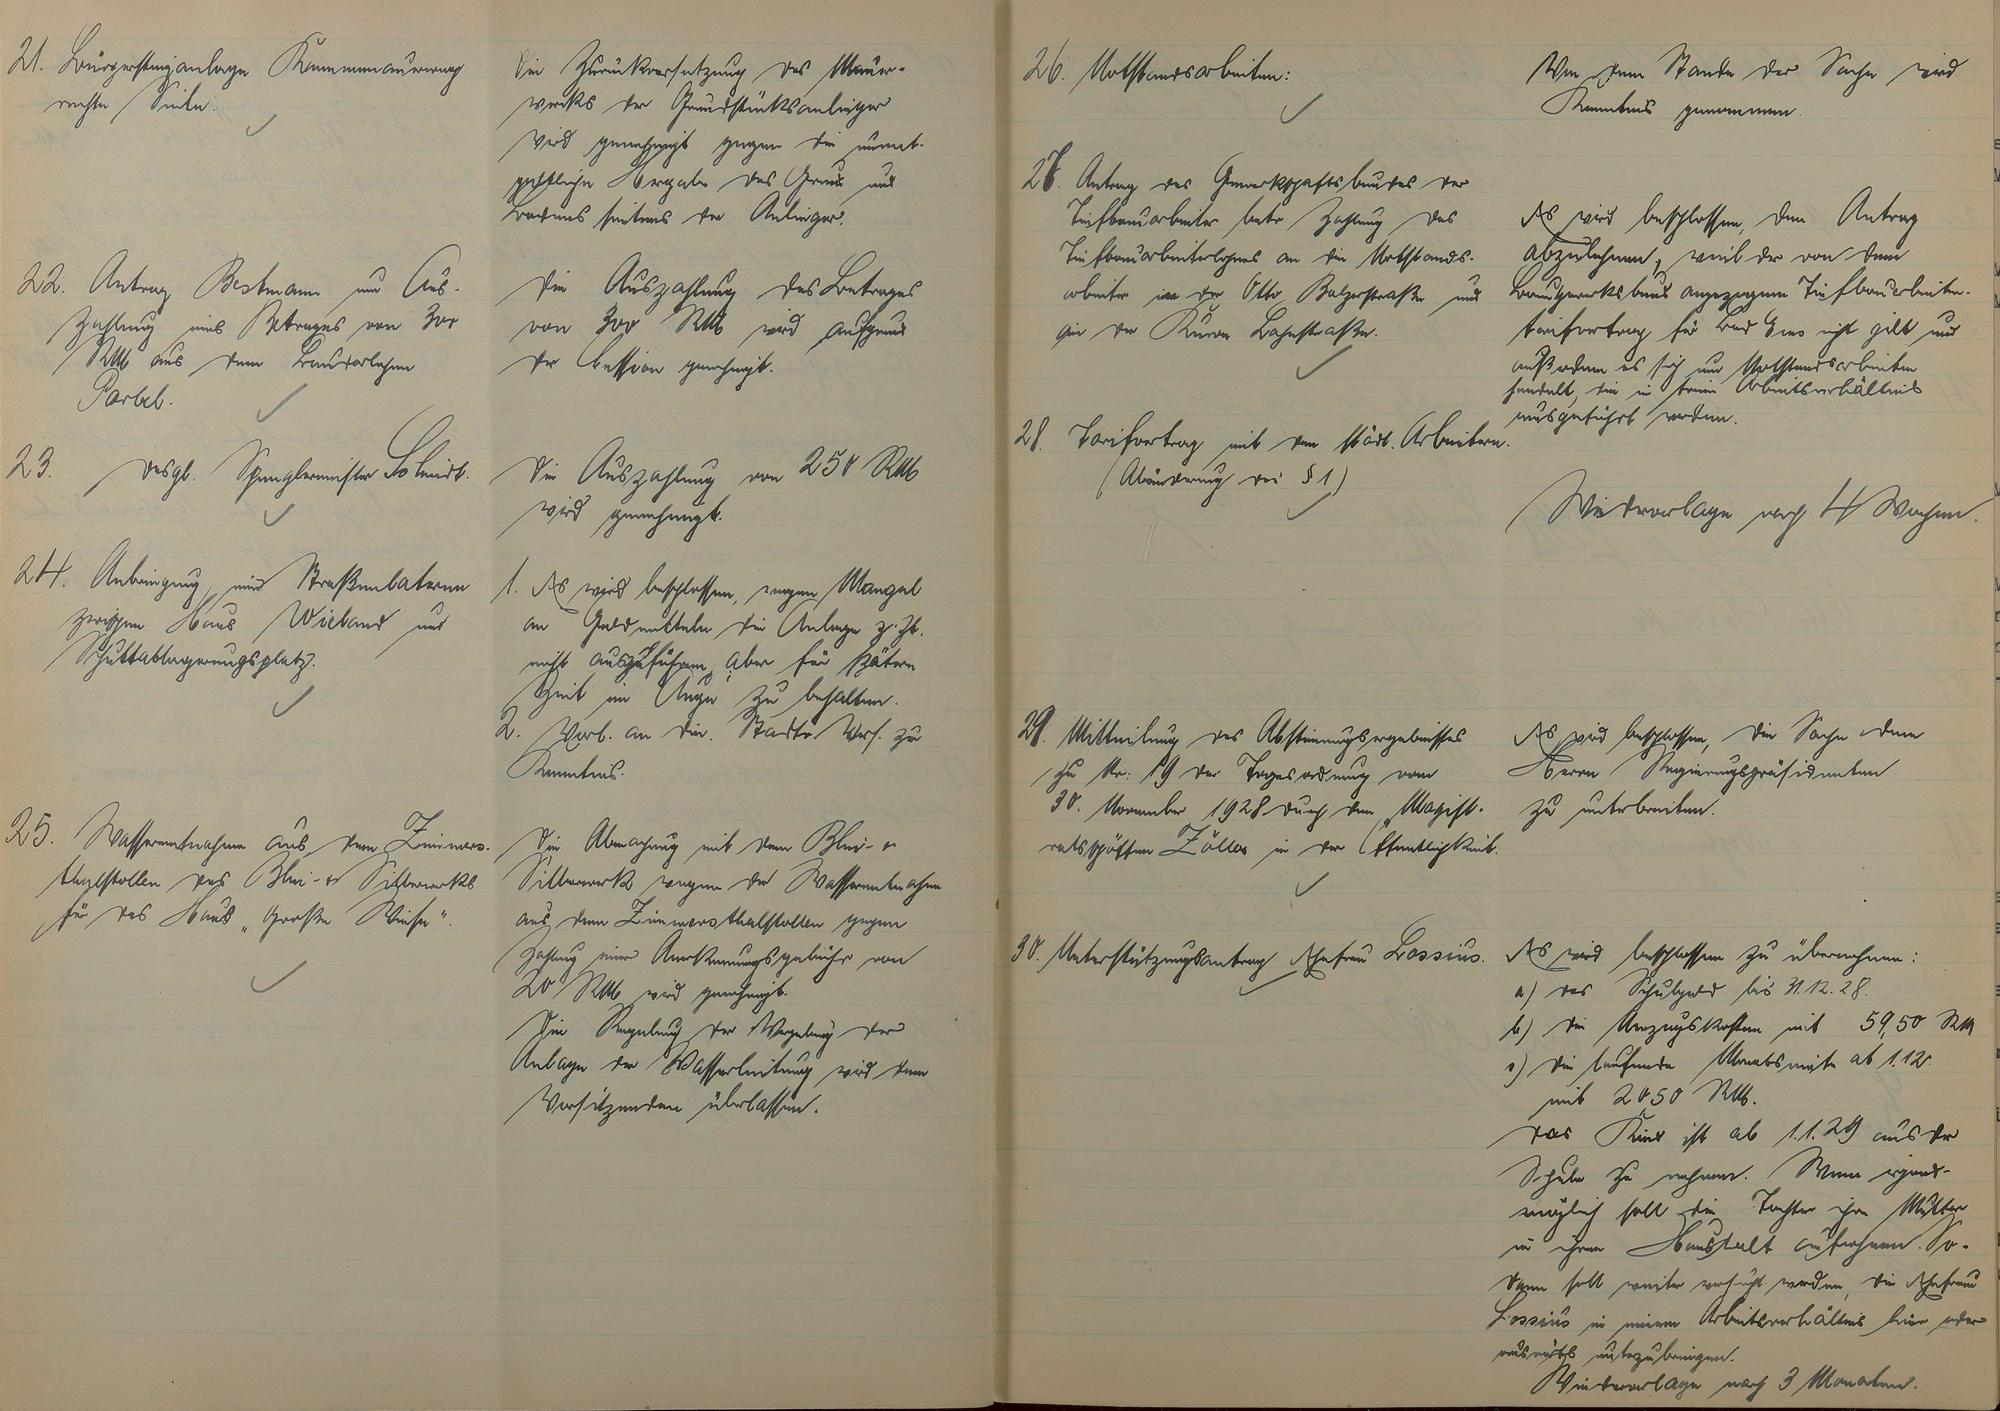 21. Bürgersteiganlage Kemmenauerweg
rechte Seite.
Die Zurückversetzung des Mauer-
werks der Grundstücksanlieger
wird genehmigt gegen die unent-
geltliche Hergabe des Grund und
Bodens seitens der Anlieger.
22. Antrag Bestmann um Aus-
zahlung eines Betrages von 300
RM aus dem Baudarlehen
Die Auszahlung des Betrages
von 300 RM wird aufgrund
der Cession genehmigt.
23. desgl. Spenglermeister Schmidt.
Die Auszahlung von 250 RM
wird genehmigt.
24. Anbringung einer Straßenlaterne
zwischen Haus Wieland und
Schuttablagerungsplatz.
1. Es wird beschlossen, wegen Mangel
an Geldmitteln die Anlage z. Zt.
nicht auszuführen, aber für spätere
Zeit im Auge zu behalten.
2. Vorl. an die Stadtv. Vers. zur
Kenntnis.
25. Wasserentnahme aus dem Zimmers-
thalstollen des Blei- u Silberwerks
für das Haus „Große Wiese".
Die Abmachung mit dem Blei- u
Silberwerk wegen der Wasserentnahme
aus dem Zimmersthalstollen gegen
Zahlung einer Anerkennungsgebühr von
20 RM wird genehmigt.
Die Regelung der Vergebung der
Anlage der Wasserleitung wird dem
Vorsitzenden überlassen.
26. Notstandsarbeiten:
Von dem Stande der Sache wird
Kenntnis genommen.
27. Antrag des Gewerkschaftsbundes der
Tiefbauarbeiter betr Zahlung des
Tiefbauarbeiterlohnes an die Notstands-
arbeiter in der Otto Balzerstraße und
an der Kuron Bahnstraße.
Es wird beschlossen, den Antrag
abzulehnen, weil der von dem
Baugewerksbund angezogene Tiefbauarbeiter-
tarifvertrag für Bad Ems nicht gilt und
außerdem es sich um Notstandsarbeiten
handelt, die in keinem Arbeitsverhältnis
ausgeführt werden.
28. Tarifvertrag mit den städt. Arbeitern.
(Abänderung des § 1)
Wiedervorlage nach 4 Wochen.
29. Mitteilung des Abstimmungsergebnisses
zu Nr: 19 der Tagesordnung vom
30. November 1928 durch den Magist-
ratsschöffen Zöller in der Öffentlichkeit.
Es wird beschlossen, die Sache dem
Herrn Regierungspräsidenten
zu unterbreiten.
30. Unterstützungsantrag Ehefrau Lossius.
Es wird beschlossen zu übernehmen:
a) das Schulgeld bis 31.12.28.
b) die Umzugskosten mit 59,50 RM
c) die laufende Monatsmiete ab 1.12.
mit 20 50 RM.
Das Kind ist ab 1.1.29 aus der
Schule zu nehmen. Wenn irgend-
möglich soll die Tochter ihre Mutter
in ihren Haushalt aufnehmen. So-
dann soll weiter versucht werden, die Ehefrau
Lossius in einem Arbeitsverhältnis hier oder
auswärts unterzubringen.
Wiedervorlage nach 3 Monaten.